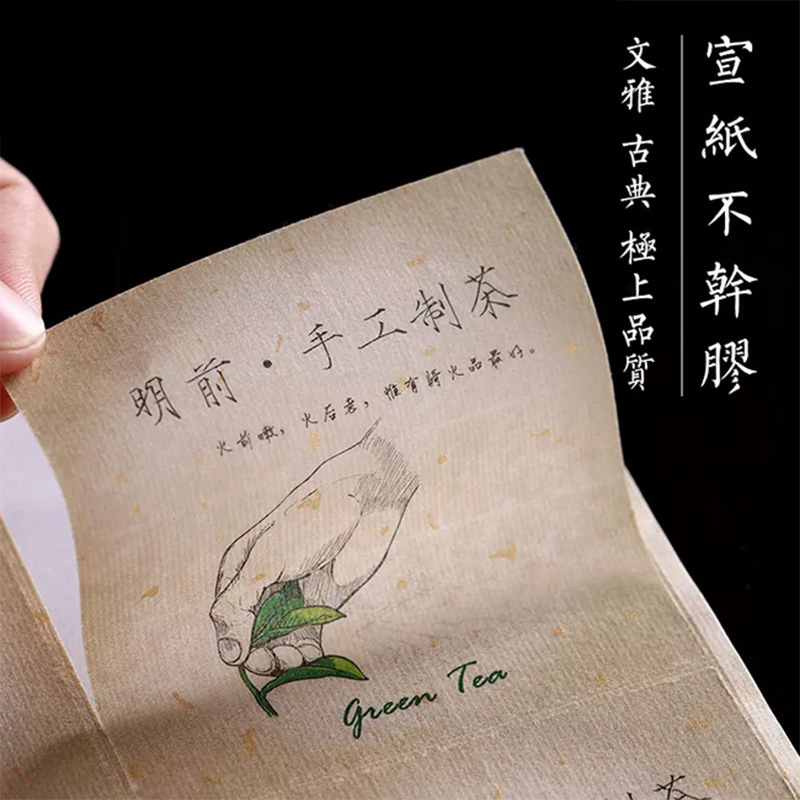 宣紙不幹膠
文雅 古典 極上品質
明前·手工制茶
火前嫩，火后老，惟有骑火品最好。
Green Tea
茶